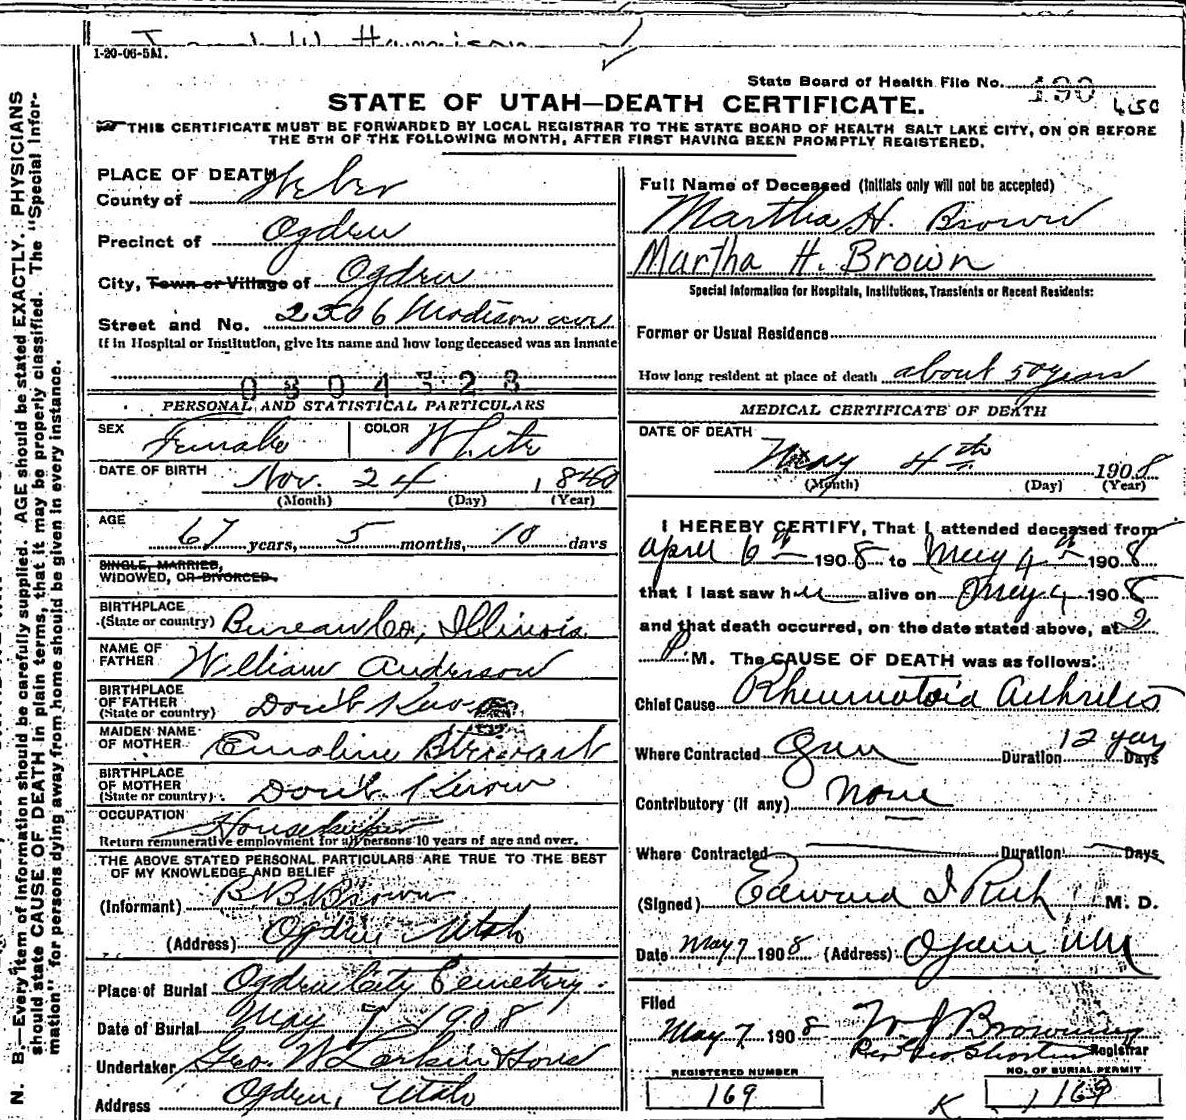 1-20-06-5M.
State Board of Health File No. 190
450
STATE OF UTAH—DEATH CERTIFICATE.
THIS CERTIFICATE MUST BE FORWARDED BY LOCAL REGISTRAR TO THE STATE BOARD OF HEALTH SALT LAKE CITY, ON OR BEFORE
THE 5TH OF THE FOLLOWING MONTH, AFTER FIRST HAVING BEEN PROMPTLY REGISTERED.
N. B.—Every item of information should be carefully supplied. AGE should be stated EXACTLY. PHYSICIANS
should state CAUSE OF DEATH in plain terms, that it may be properly classified. The "Special Infor-
mation" for persons dying away from home should be given in every instance.
PLACE OF DEATH
County of Weber
Precinct of Ogden
City, Town or Village of Ogden
Street and No. Madison ave
If in Hospital or Institution, give its name and how long deceased was an Inmate
PERSONAL AND STATISTICAL PARTICULARS
SEX Female COLOR White
DATE OF BIRTH Nov. 24 1840
(Month) (Day) (Year)
AGE
67 years, 5 months, 10 days
SINGLE, MARRIED,
WIDOWED, OR DIVORCED
BIRTHPLACE
(State or country) Bureau Co, Illinois
NAME OF
FATHER William Anderson
BIRTHPLACE
OF FATHER
(State or country) Don't Know
MAIDEN NAME
OF MOTHER Emoline Stewart
BIRTHPLACE
OF MOTHER
(State or country) Don't Know
OCCUPATION Housekeeper
Return remunerative employment for all persons 10 years of age and over.
THE ABOVE STATED PERSONAL PARTICULARS ARE TRUE TO THE BEST
OF MY KNOWLEDGE AND BELIEF
(Informant) B B Brown
(Address) Ogden Utah
Place of Burial Ogden City Cemetery.
Date of Burial May 7 1908
Undertaker Geo. W Larkin & Sons
Address Ogden, Utah
Full Name of Deceased (Initials only will not be accepted)
Martha H. Brown
Martha H. Brown
Special Information for Hospitals, Institutions, Transients or Recent Residents:
Former or Usual Residence
How long resident at place of death about 50 years
MEDICAL CERTIFICATE OF DEATH
DATE OF DEATH
May 4th 1908
(Month) (Day) (Year)
I HEREBY CERTIFY, That I attended deceased from
April 6th 1908 to May 4th 1908
that I last saw her alive on May 4 1908
and that death occurred, on the date stated above, at 2
P M. The CAUSE OF DEATH was as follows:
Chief Cause Rheumatoid Arthritis
Where Contracted Duration 12 years Days
Contributory (if any) None
Where Contracted Duration Days
(Signed) Edward I Rich M. D.
Date May 7 1908 (Address) Ogden Utah
Filed
May 7 1908 W J Browning
Registrar
REGISTERED NUMBER
169
NO. OF BURIAL PERMIT
169
K